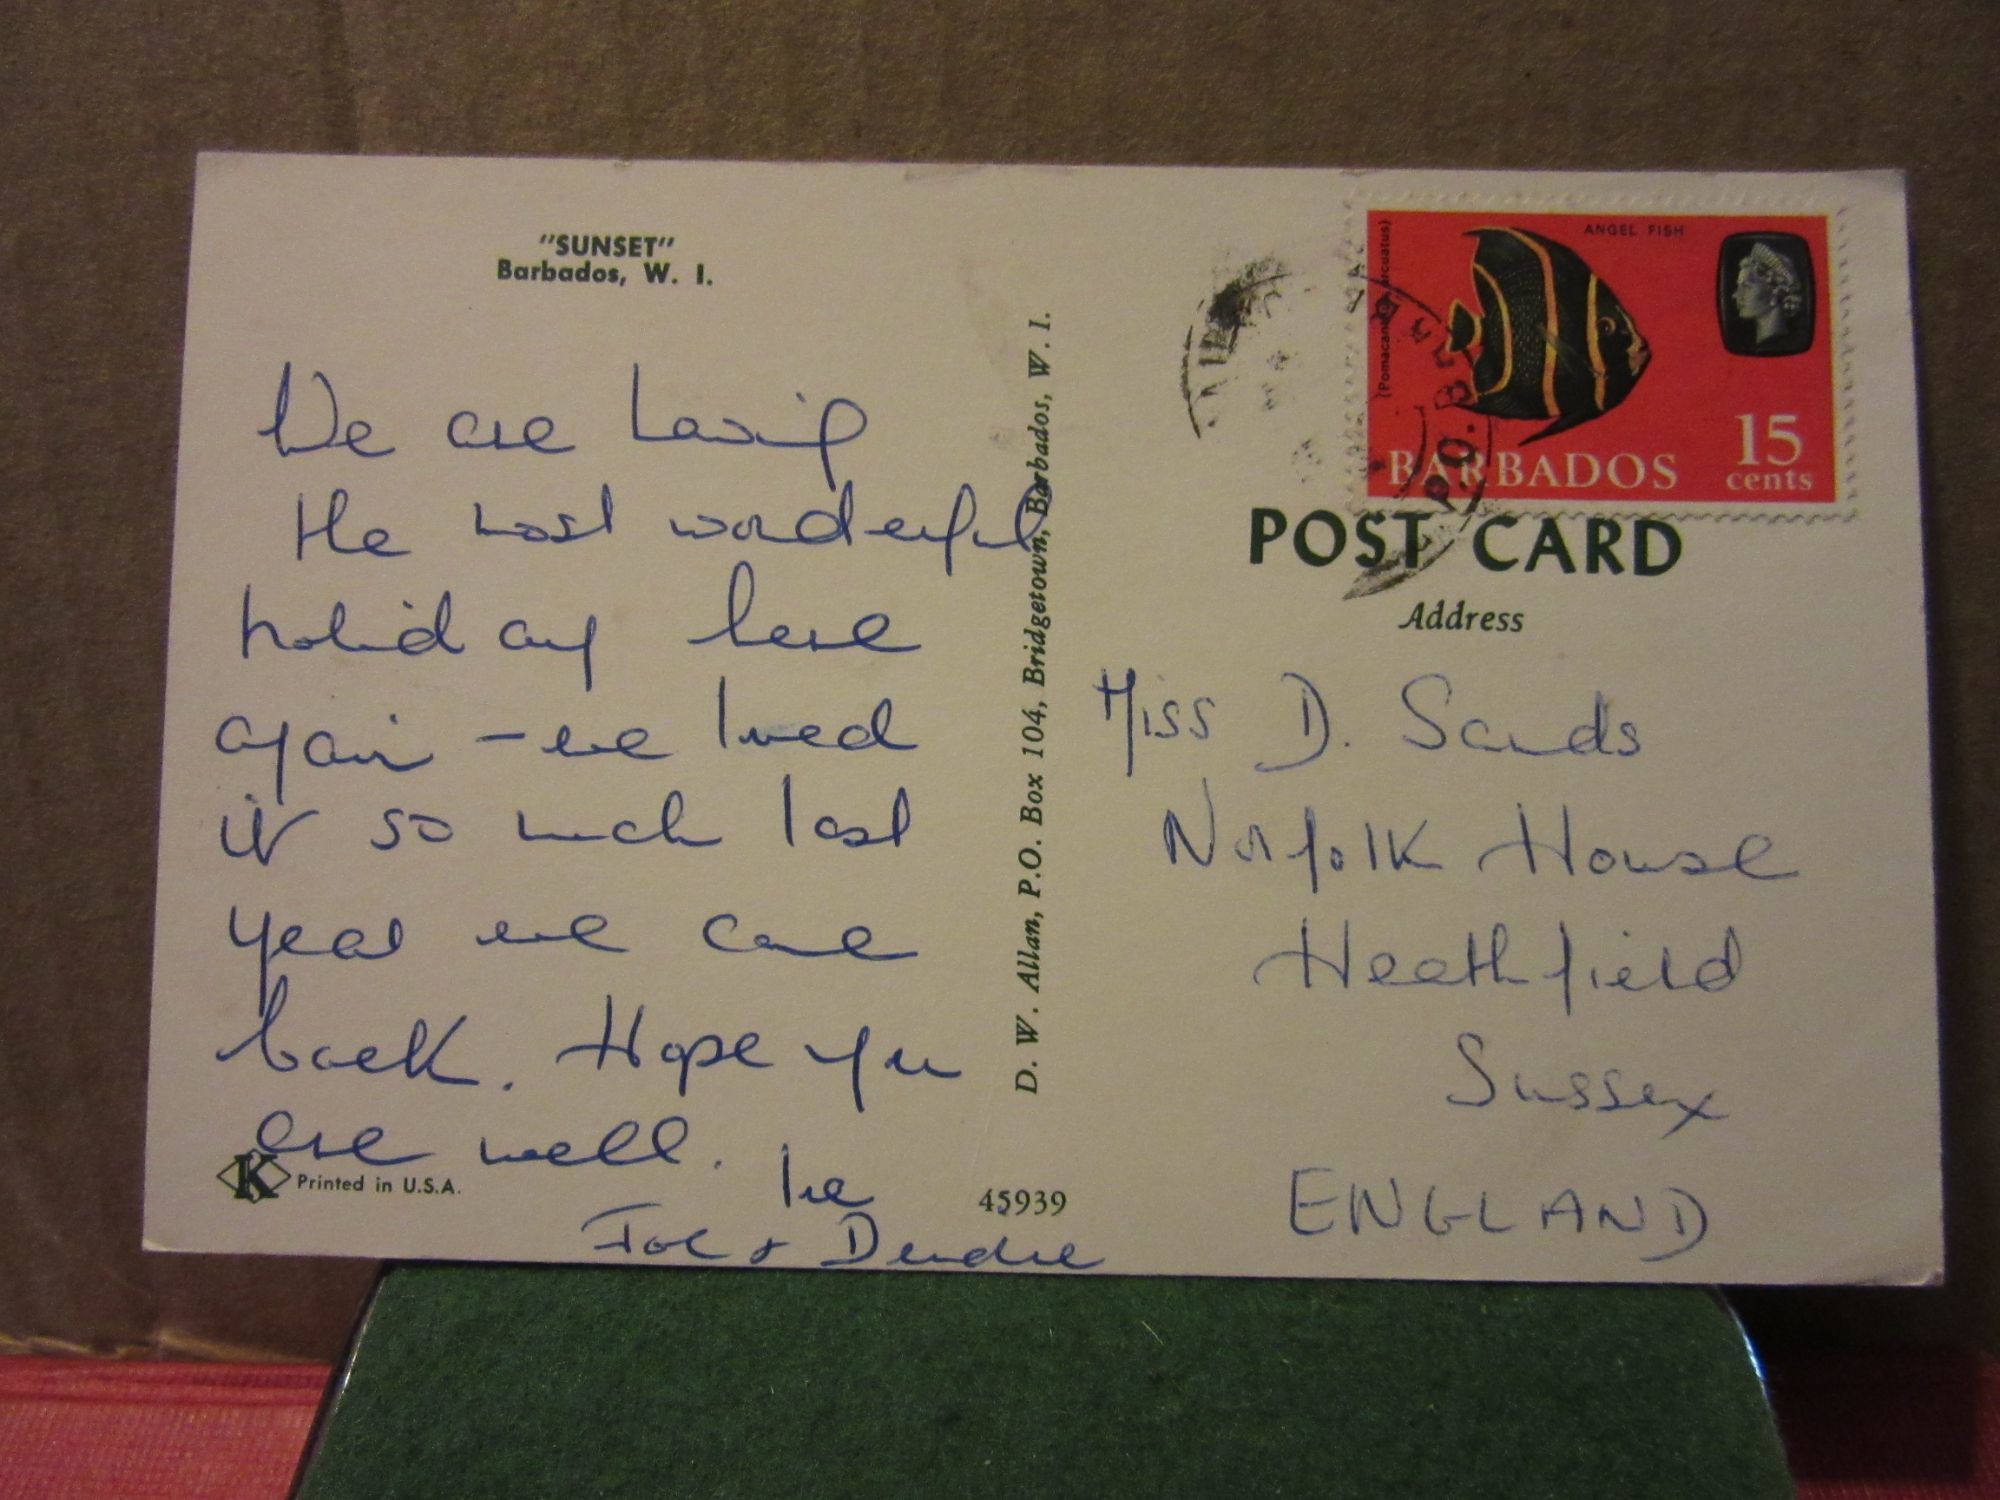 "SUNSET"
Barbados, W. I.
We are having
the most wonderful
holiday here
again - we loved
it so much last
year we came
back. Hope you
are well.
Joe & Deirdre
K Printed in U.S.A.
45939
D. W. Allan, P.O. Box 104, Bridgetown, Barbados, W. I.
ANGEL FISH
BARBADOS
15
cents
P.O.
POST CARD
Address
Miss D. Sands
Norfolk House
Heathfield
Sussex
ENGLAND